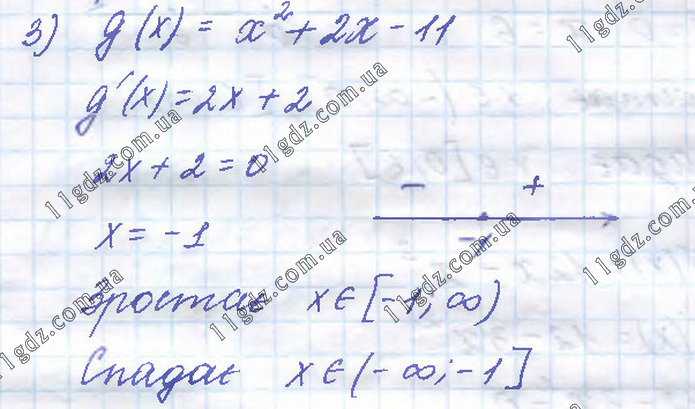 3) g(x) = x² + 2x - 11
g'(x) = 2x + 2
2x + 2 = 0
- +
x = -1
-1
Зростає x ∈ [-1; ∞)
Спадає x ∈ (-∞; -1]
11gdz.com.ua
11gdz.com.ua
11gdz.com.ua
11gdz.com.ua
11gdz.com.ua
11gdz.com.ua
11gdz.com.ua
11gdz.com.ua